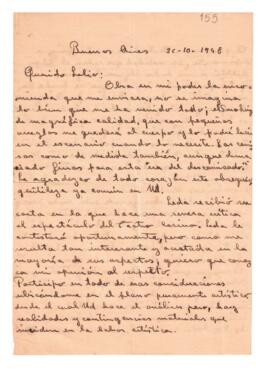 155
Buenos Aires 20-10-1948
Querido Lelio:
Obra en mi poder la enco-
mienda que me enviera, no se imagina
lo bien que me ha venido todo; el smoking
de magnífica calidad, que con pequeños
arreglos me quedará al cuerpo y lo podré lucir
en el escenario cuando lo necesite. Las cami-
sas como de medida también, aunque dema-
siado finas para esta era del descamisado.
Le agradezco de todo corazón este obsequio,
gentileza ya común en Ud.
Leda recibió su
carta en la que hace una severa crítica
al espectáculo del Teatro Casino, Leda le
contestará oportunamente, pero como me
resulta tan interesante y acertada en la
mayoría de sus aspectos, quiero que conoz-
ca mi opinión al respecto.
Participo en todo de esas consideraciones
ubicándome en el plano puramente artístico
desde el cual Ud hace el análisis pero, hay
realidades y contingencias materiales que
inciden en la labor artística.